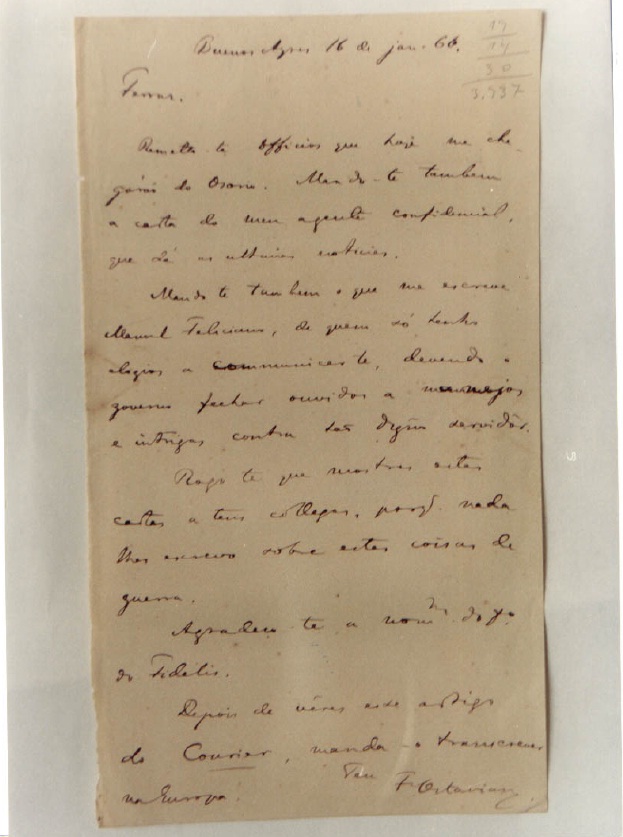 Buenos Ayres 16 de jan. 66.
17
14
30
3.937
Ferraz.
Remetto-te officios que hoje me che-
gárão do Osorio. Mando-te tambem
a carta do meu agente confidencial,
que dá as ultimas noticias.
Mando te tambem o que me escreve
Manoel Feliciano, de quem só tenho
elogios a communicar te, devendo o
governo fechar ouvidos a
e intrigas contra tão digno servidor.
Rogo te que mostres estas
cartas a teus collegas, porq. nada
lhes escrevo sobre estas coisas de
guerra.
Agradeço te a nom.m do fo.
do Fidelis.
Depois de vêres esse artigo
do Courier, manda-o transcrever
na Europa.
Teu F. Octaviano